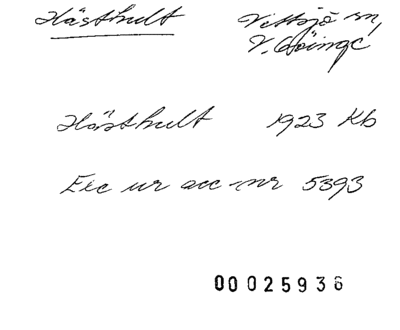 Hästhult
Vittsjö sn,
V. Göinge
Hästhult 1923 Kb
Exc ur acc-nr 5393
00025936